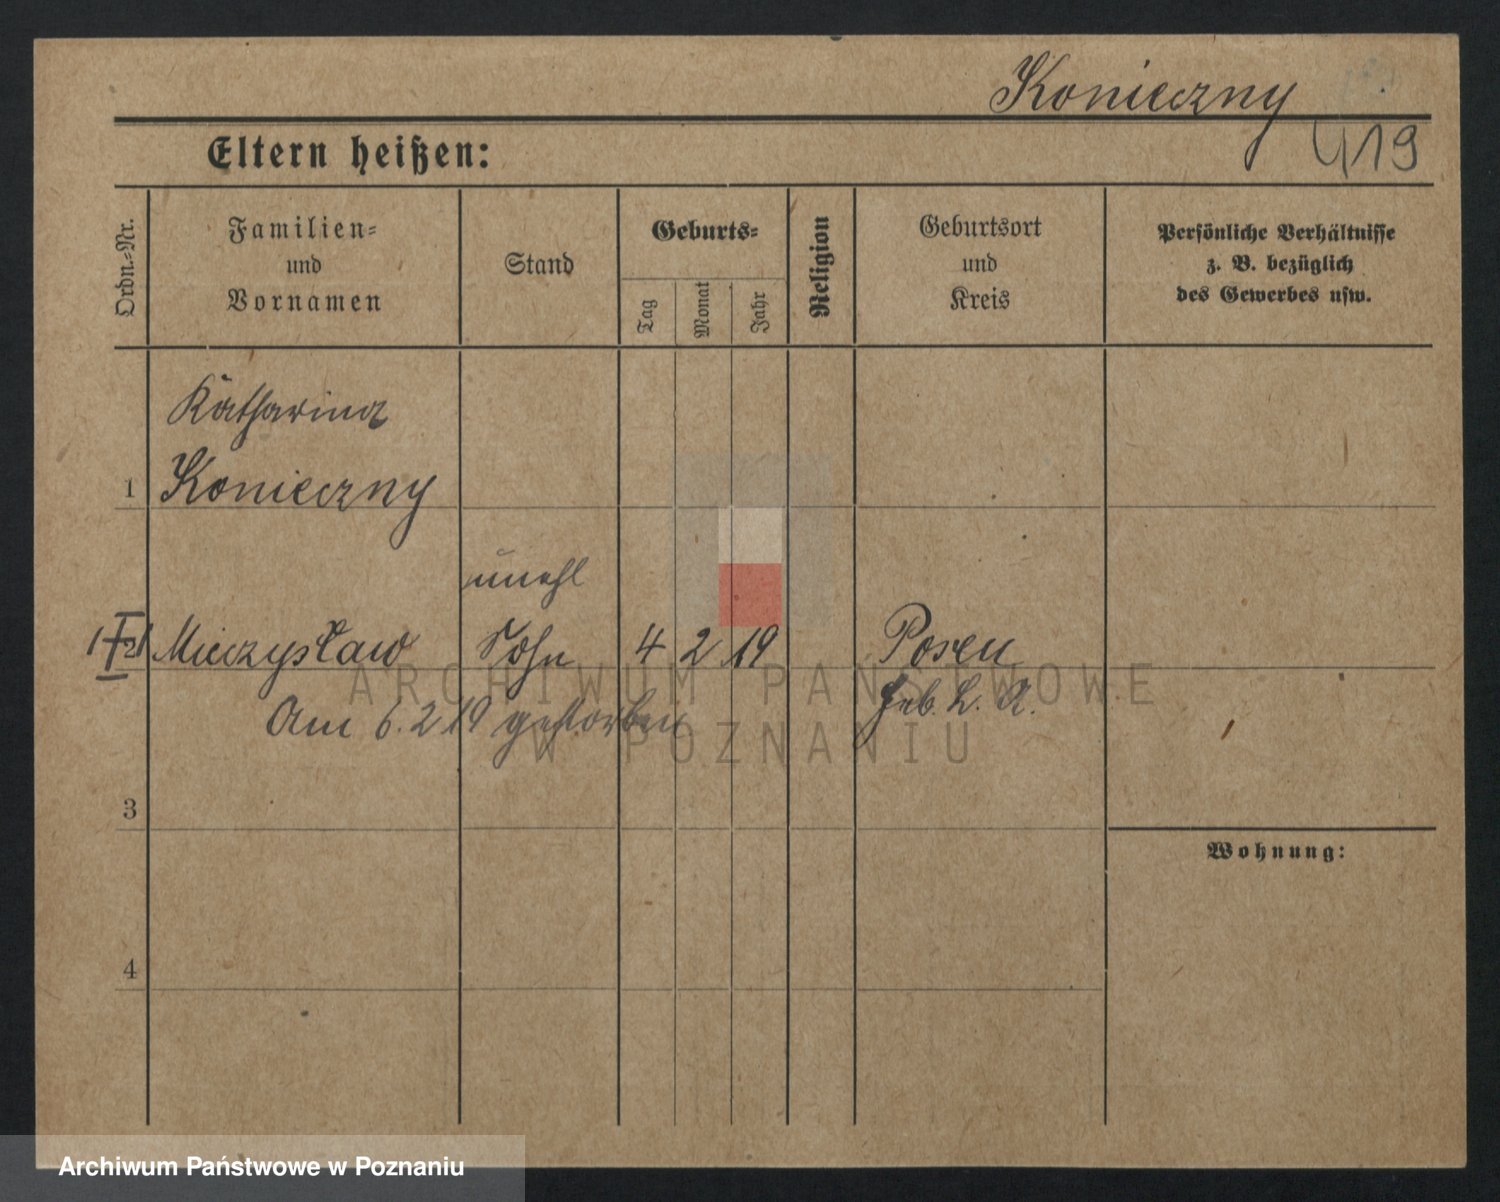 Konieczny
419
Eltern heißen:
Ordn.-Nr.
Familien-
und
Vornamen
Stand
Geburts-
Tag
Monat
Jahr
Religion
Geburtsort
und
Kreis
Persönliche Verhältnisse
z. B. bezüglich
des Gewerbes usw.
Katharina
1 Konieczny
unehl
2 Mieczysław Sohn 4 2 19 Posen
Am 6. 2 19 gestorben
Geb. L. A.
3
Wohnung:
4
ARCHIWUM PAŃSTWOWE
W POZNANIU
Archiwum Państwowe w Poznaniu